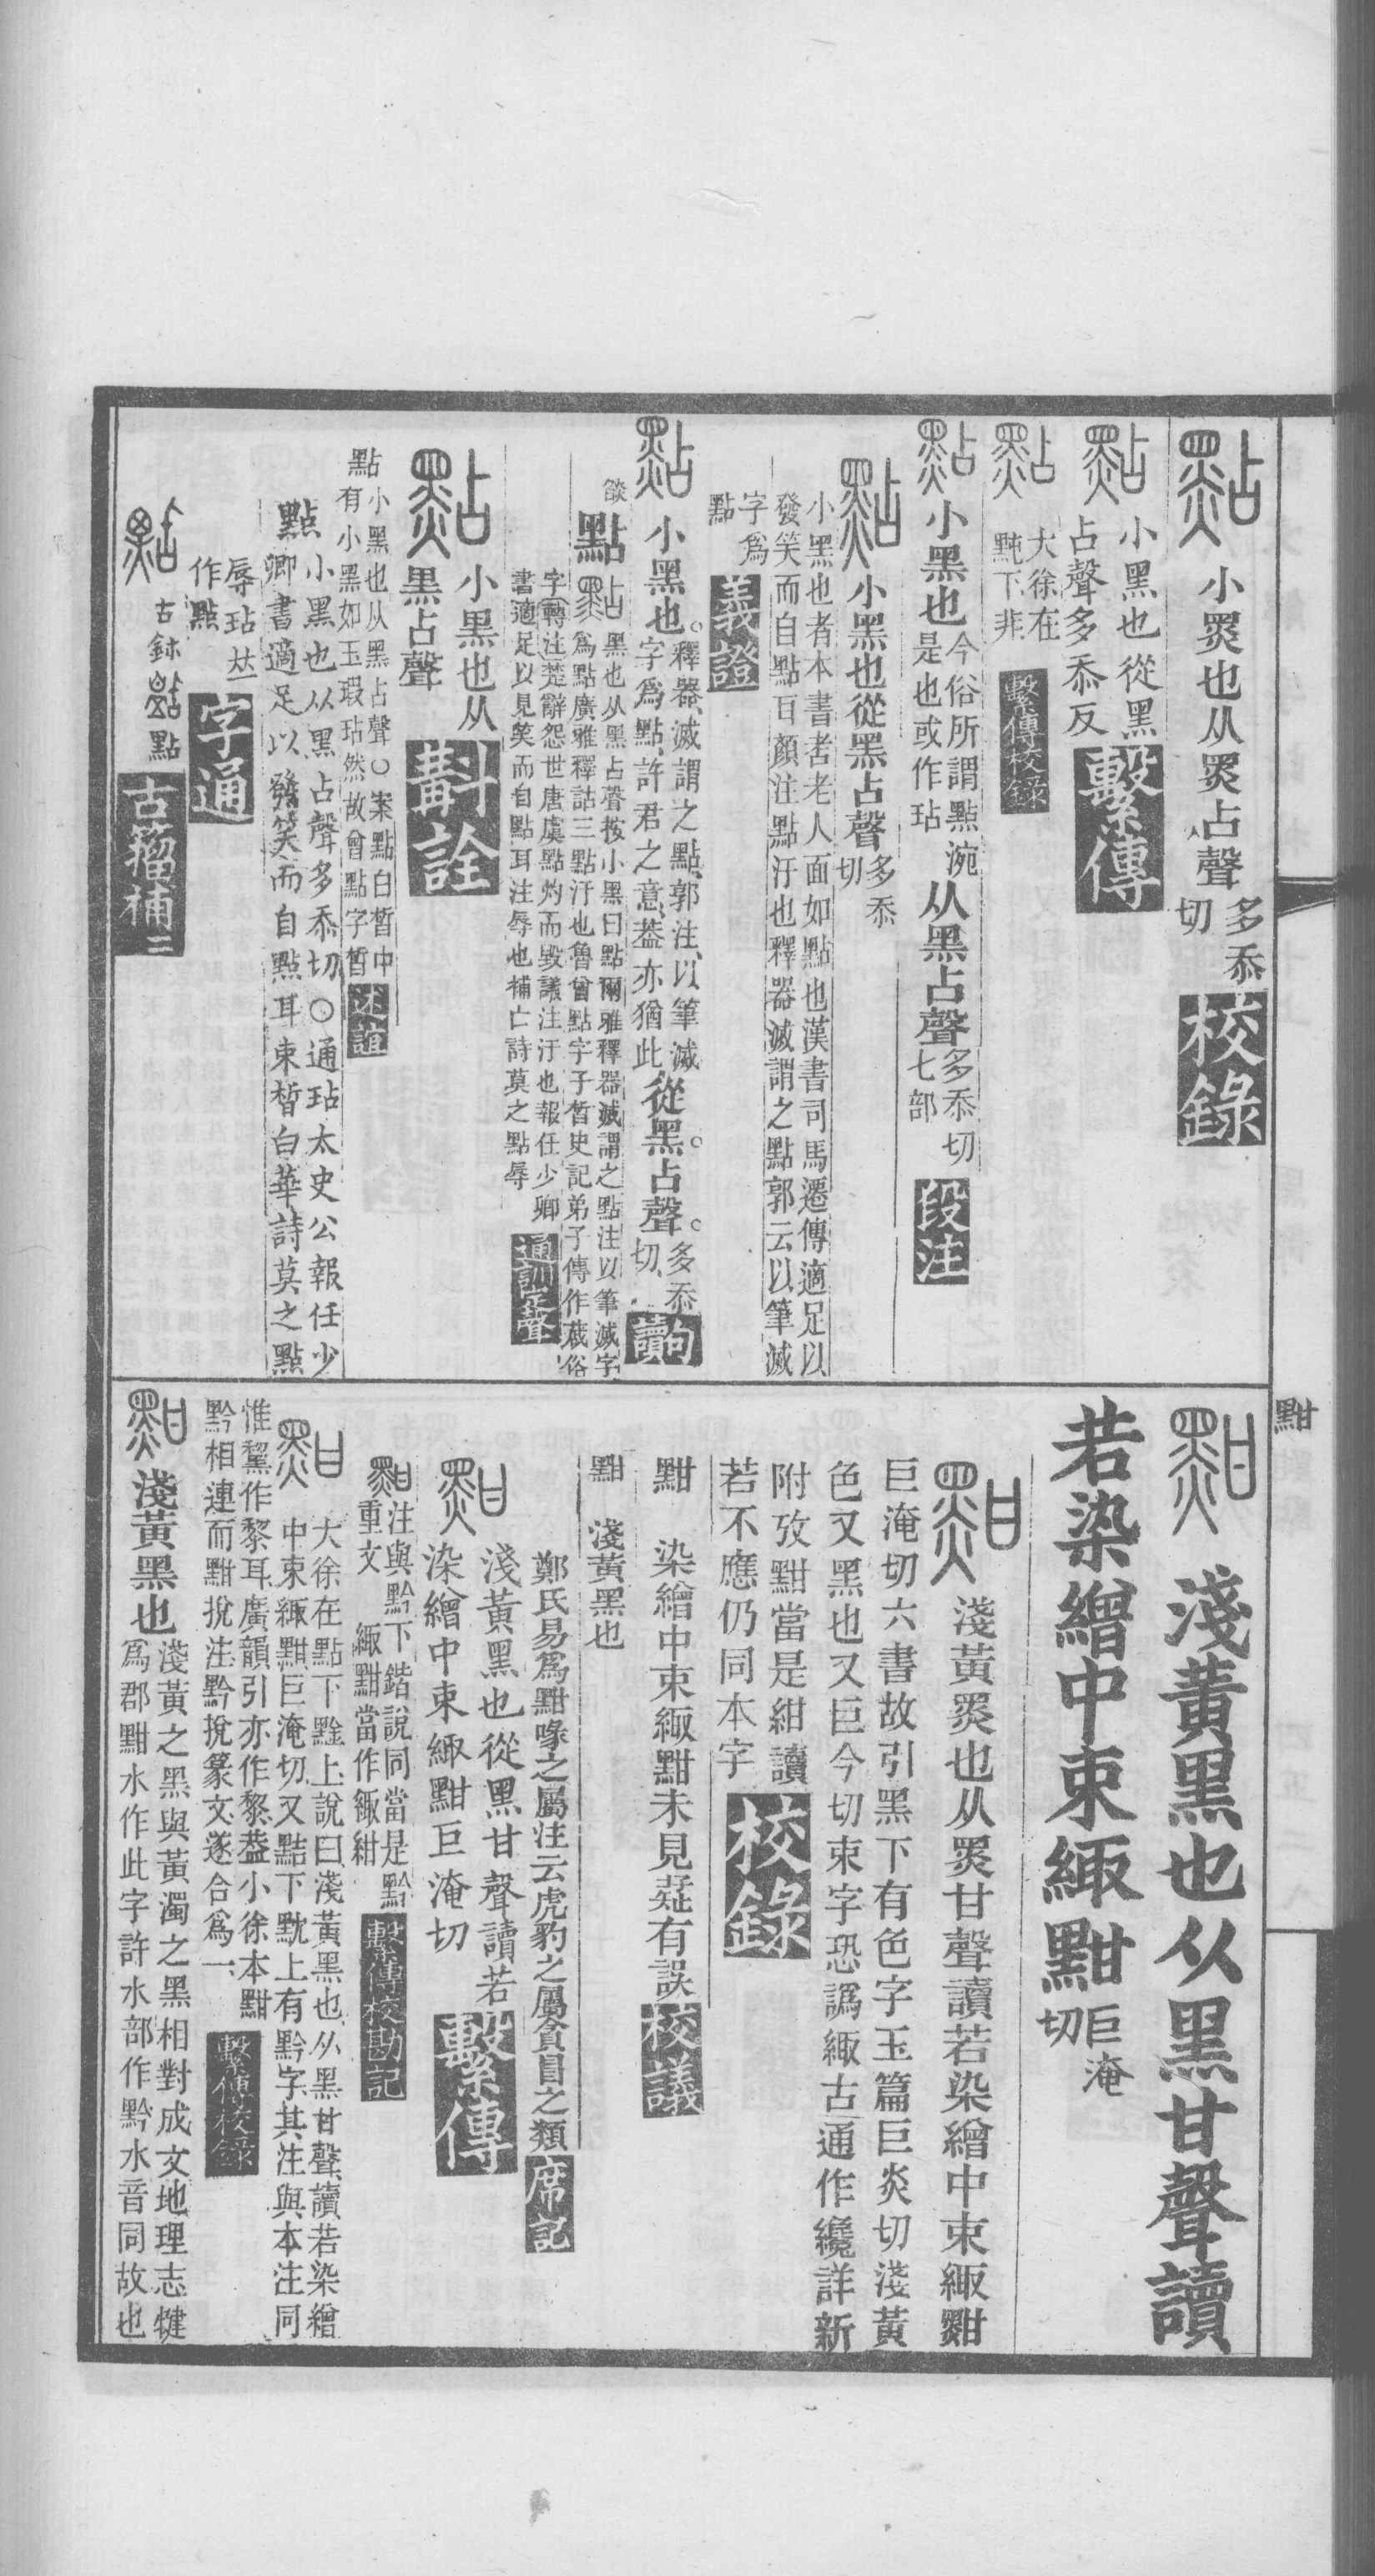 點 小炅也从炅占聲多忝切 校錄
點 小黑也從黑占聲多忝反 繫傳
點 大徐在黗下非 繫傳校錄
點 小黑也今俗所謂點涴是也或作玷从黑占聲多忝切七部 段注
點 小黑也從黑占聲多忝切
小黑也者本書耇老人面如點也漢書司馬遷傳適足以
發笑而自點耳顏注點汙也釋器滅謂之點郭云以筆滅
字爲點 義證
點 小黑也。釋器、滅謂之點、郭注、以筆滅字爲點、許君之意、葢亦猶此從黑。占聲。多忝切、 句讀
燄 點 點 黑也从黑占聲按小黑曰點爾雅釋器滅謂之點注以筆滅字
爲點廣雅釋詁三點汙也魯曾點字子晳史記弟子傳作蒧俗
字轉注楚辭怨世唐虞點灼而毀議注汙也報任少卿
書適足以見笑而自點耳注辱也補亡詩莫之點辱 通訓定聲
點 小黑也从黑占聲 斠詮
點小黑也从黑占聲○案點白晳中
點有小黑如玉瑕玷然故曾點字晳 述誼
點小黑也从黑占聲多忝切○通玷太史公報任少
卿書適足以發笑而自點耳束晳白華詩莫之點
辱玷𠀤作點 字通
點 古鉥 點 古籀補二
黚
黚 淺黃黑也从黑甘聲讀
若染繒中束緅黚巨淹切
黚 淺黃炅也从炅甘聲讀若染繒中束緅黚
巨淹切六書故引黑下有色字玉篇巨炎切淺黃
色又黑也又巨今切束字恐譌緅古通作纔詳新
附攷黚當是紺讀
若不應仍同本字 校錄
黚 染繒中束緅黚未見疑有誤 校議
黚 淺黃黑也
鄭氏易爲黚喙之屬注云虎豹之屬貪冒之類 席記
黚 淺黃黑也從黑甘聲讀若
染繒中束緅黚巨淹切 繫傳
黚 注與黔下 鍇說同當是黔
重文 緅黚當作緅紺 繫傳校勘記
黚 大徐在點下黅上說曰淺黃黑也从黑甘聲、讀若染繒
中束緅黚巨淹切、又點下黕上有黔字、其注與本注同
惟黧作黎耳、廣韻引亦作黎、葢小徐本黚
黔相連而黚挩注、黔挩篆文、遂合爲一、 繫傳校錄
黚 淺黃黑也淺黃之黑與黃濁之黑相對成文地理志犍
爲郡黚水作此字許水部作黔水音同故也